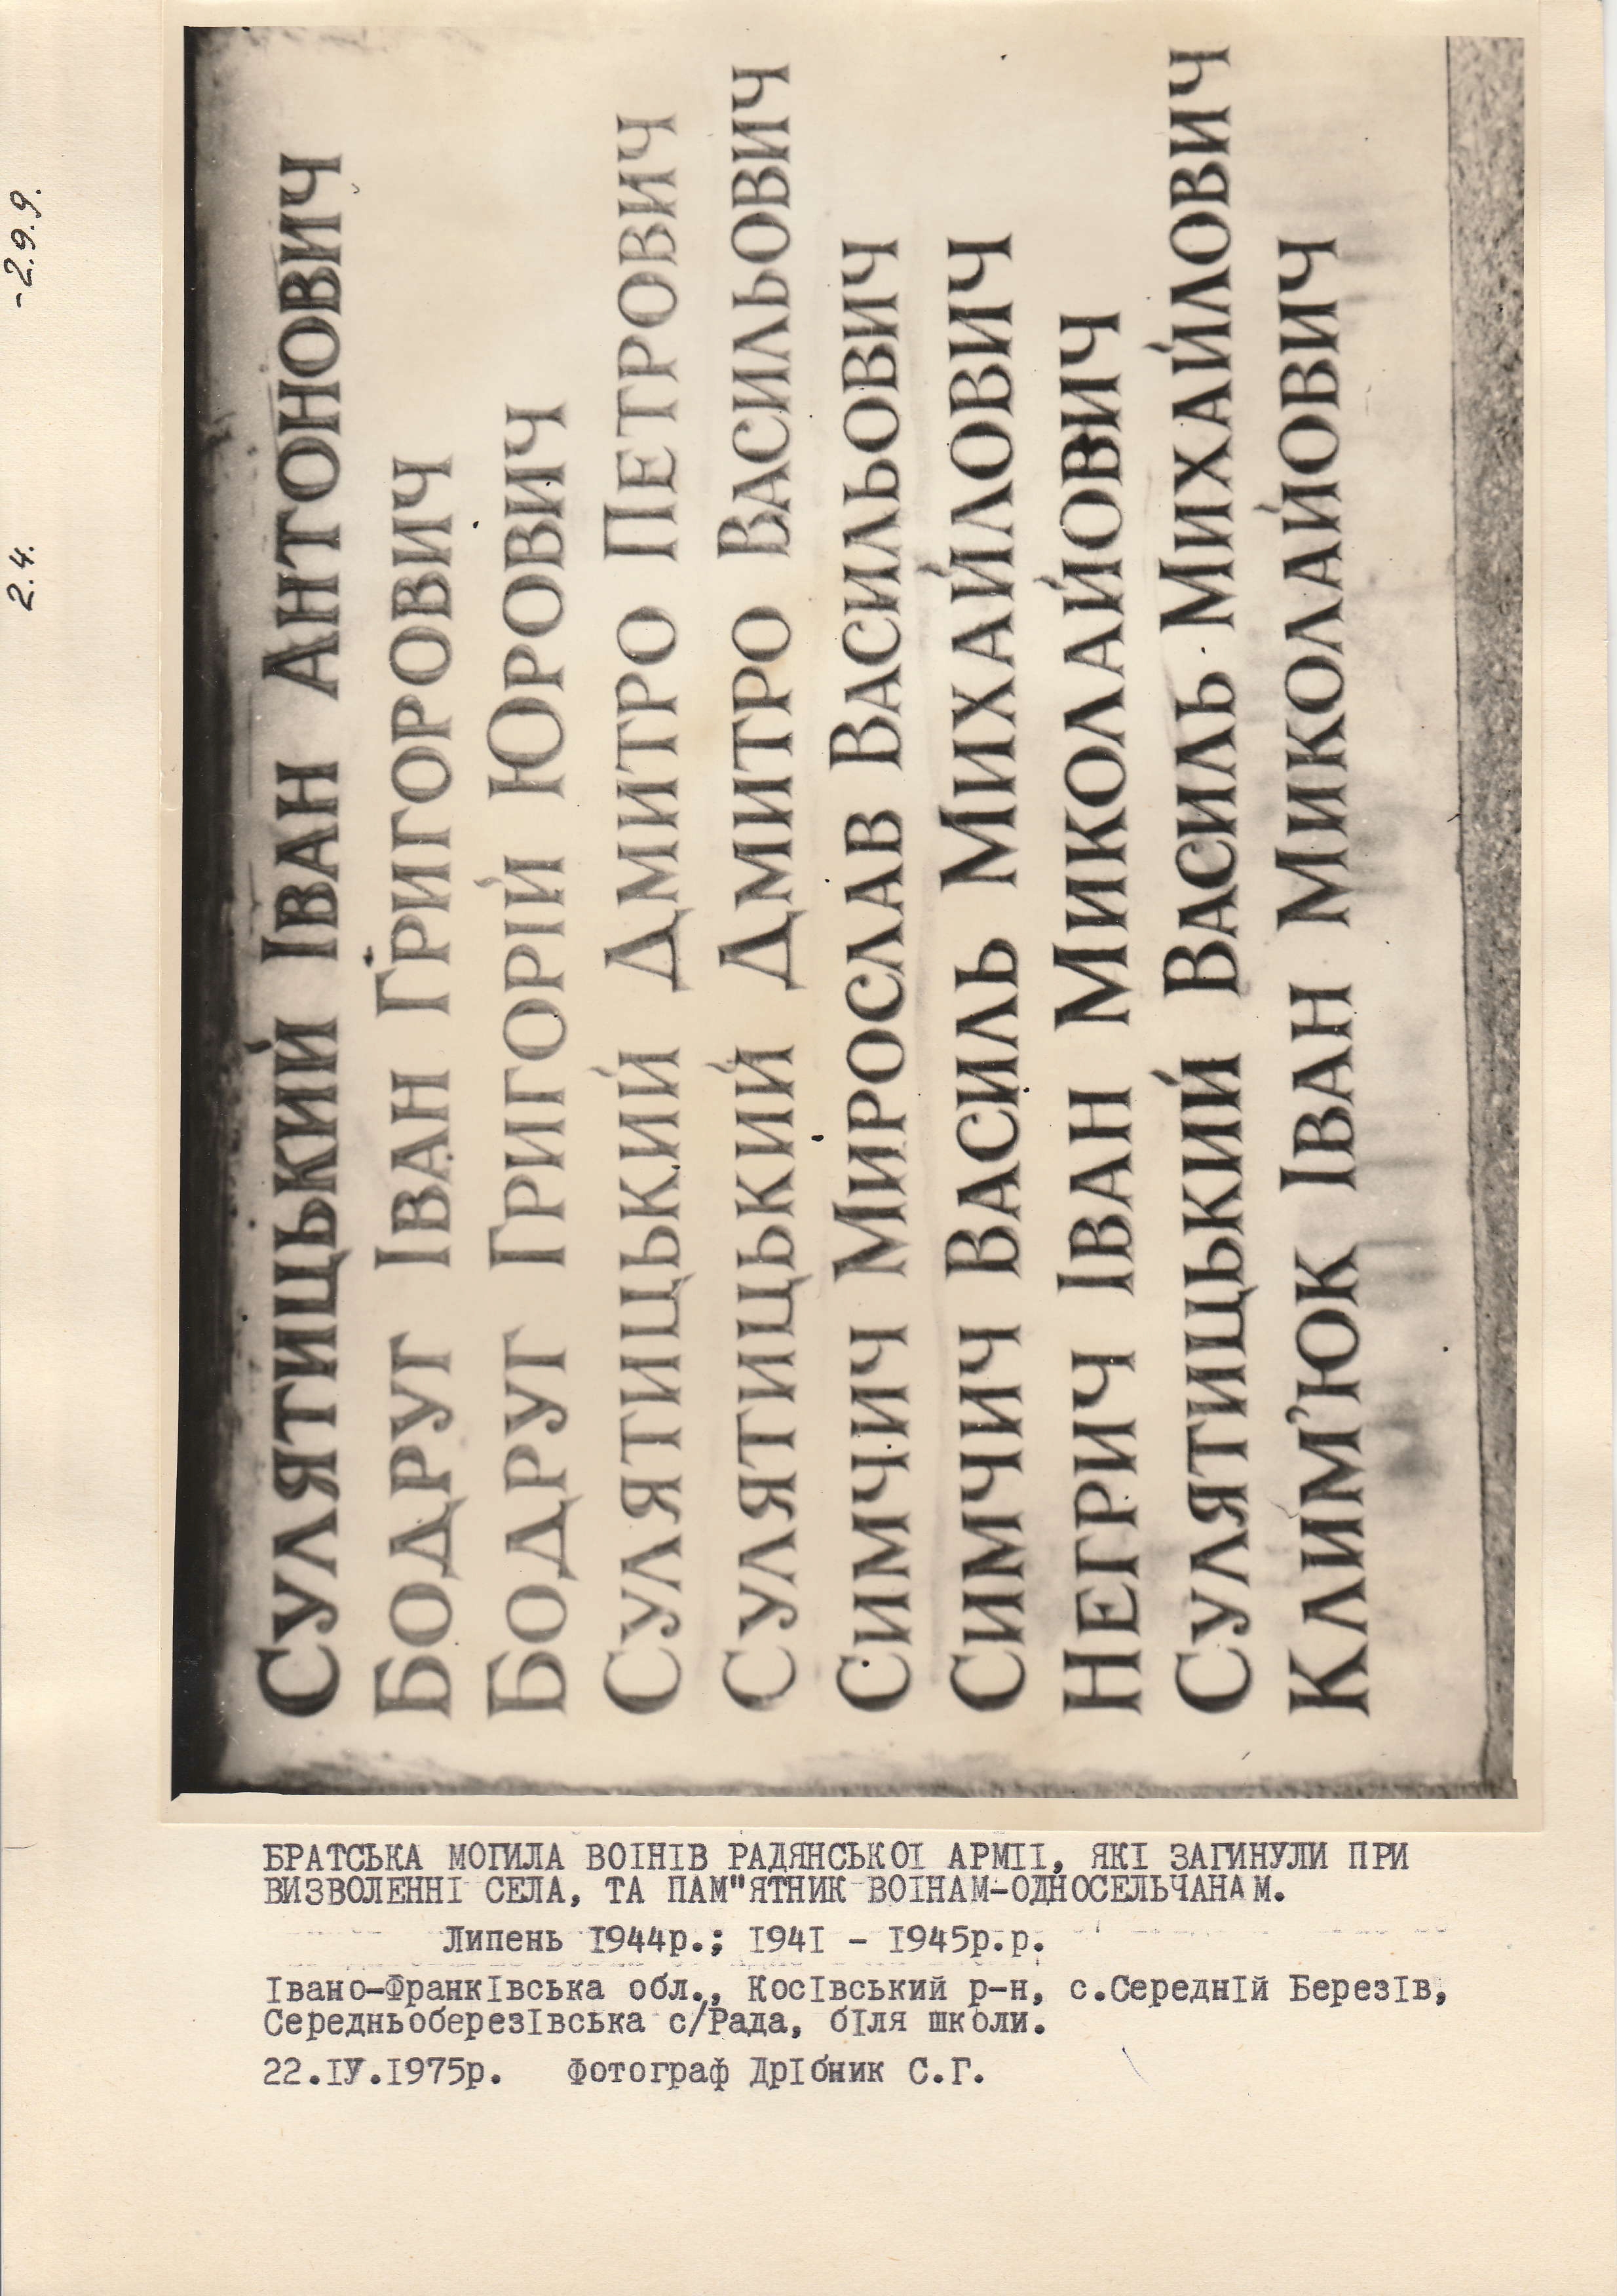 2.4. -2.9.9.
Сулятицький Іван Антонович
Бодруг Іван Григорович
Бодруг Григорій Юрович
Сулятицький Дмитро Петрович
Сулятицький Дмитро Васильович
Симчич Мирослав Васильович
Симчич Василь Михайлович
Негрич Іван Миколайович
Сулятицький Василь Михайлович
Клим'юк Іван Миколайович
БРАТСЬКА МОГИЛА ВОІНІВ РАДЯНСЬКОІ АРМІІ, ЯКІ ЗАГИНУЛИ ПРИ
ВИЗВОЛЕННІ СЕЛА, ТА ПАМ"ЯТНИК ВОІНАМ-ОДНОСЕЛЬЧАНАМ.
Липень 1944р.; 1941 - 1945р.р.
Івано-Франківська обл., Косівський р-н, с.Середній Березів,
Середньоберезівська с/Рада, біля школи.
22.ІУ.1975р. Фотограф Дрібник С.Г.